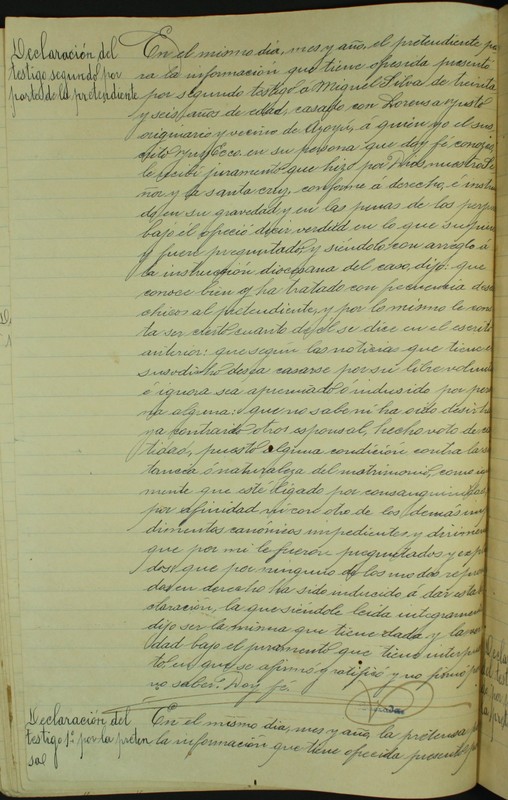 Declaración del
testigo segundo por
parte de la pretendiente
En el mismo dia, mes y año, el pretendiente pa
ra la información que tiene ofrecida presentó
por segundo testigo a Miguel Silva de treinta
y seis años de edad, casado con Lorensa
originario y vecino de Azoyú, á quien yo el sus
crito Ecco. en su persona que doy fé conozco,
le recibí juramento que hizo por Dios, nuestro Se
ñor y la santa cruz, conforme á derecho, é
do en su gravedad y en las penas de los perju
bajo él ofreció decir verdad en lo que supiere
y fuere preguntado, y siéndolo con arreglo á
la instrucción diocesana del caso, dijo: que
conoce bien y ha tratado con frecuencia desde
chicos al pretendiente, y por lo mismo le cons
ta ser cierto cuanto de él se dice en el escrito
anterior: que según las noticias que tiene el
susodicho desea casarse por su libre volunta
é ignora sea apremiado ó inducido por perso
na alguna: que no sabe ni ha oido desir ha
ya contraido otros esponsal, hecho voto de cas
tidad, puesto alguna condición contra la sus
tancia ó naturaleza del matrimonio, como
mente que esté ligado por consanguinidad
por afinidad ni con otro de los demás impe
dimentos canónicos impedientes, y dirimen
que por mi le fueron preguntados y expli
dos: que por ninguno de los modos repro
dos en derecho ha sido inducido á dar esta de
claración, la que siéndole leida integramen
dijo ser la misma que tiene dada y la ver
dad bajo el juramento que tiene interpues
to, en que se afirmó y ratificó y no firmó por
no saber. Doy fé.
Declaración del
testigo 1º por la preten
sa
En el mismo dia, mes y año, la pretensa pa
la información que tiene ofrecida presentó